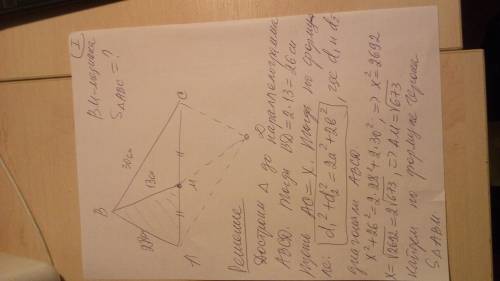 I
BM-медиана
S△ABC = ?
B
C
A
M
D
30см
13см
Решение
Достроим △ до параллелограмма
ABCD. Тогда BD = 2·13 = 26 см
Пусть AC = x. Тогда по форму
ле: d₁² + d₂² = 2a² + 2b², где d₁ и d₂
диагонали ABCD.
x² + 26² = 2·28² + 2·30², => x² = 2692
x = √2692 = 2√673, => AM = √673
найдем по формуле Герона
S△ABM